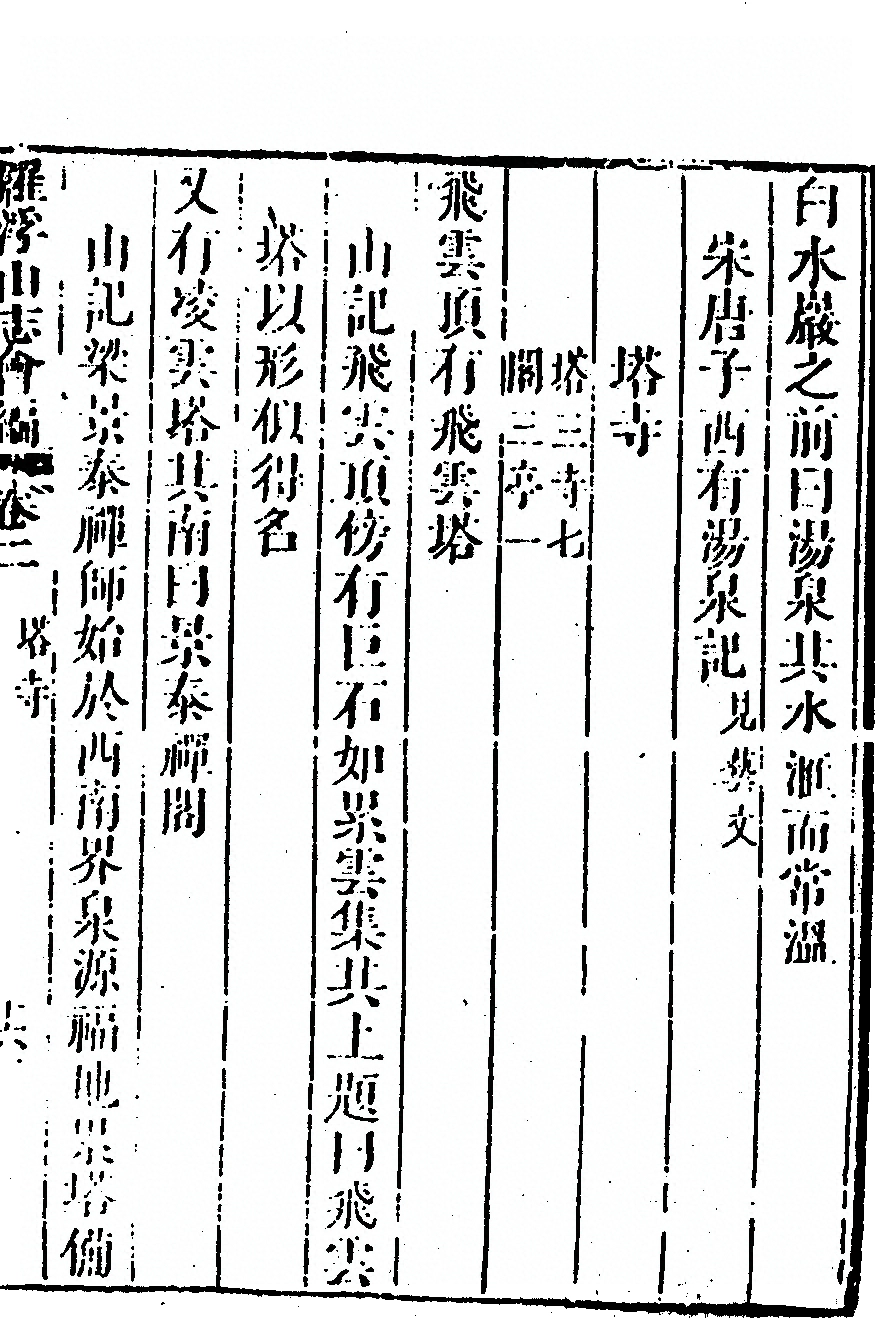 白水巖之前曰湯泉其水滙而常溫
宋唐子西有湯泉記見藝文
塔寺
塔三寺七
閣三亭一
飛雲頂有飛雲塔
山記飛雲頂傍有巨石如累雲集其上題曰飛雲
塔以形似得名
又有凌雲塔其南曰景泰禪閣
山記梁景泰禪師始於西南界泉源福地累塔備
羅浮山志會編 卷二 塔寺